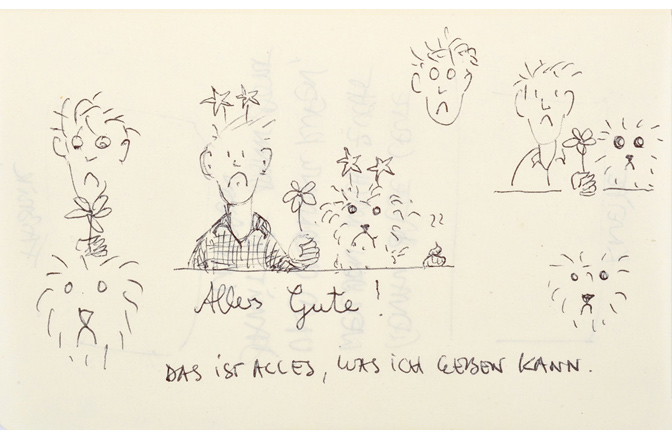 Alles Gute!
DAS IST ALLES, WAS ICH GEBEN KANN.